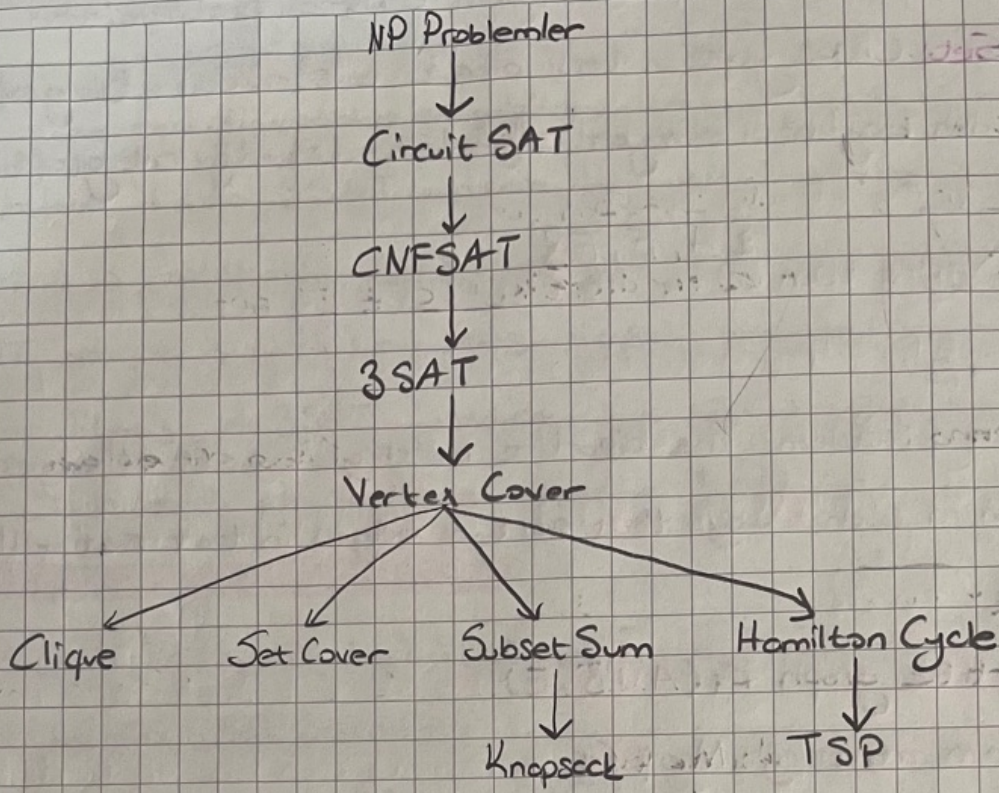 NP Problemler
Circuit SAT
CNFSAT
3SAT
Vertex Cover
Clique
Set Cover
Subset Sum
Hamilton Cycle
Knapsack
TSP